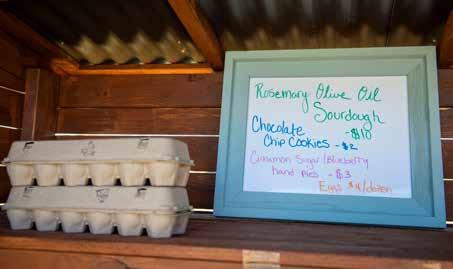 Rosemary Olive Oil
Sourdough
-$10
Chocolate
Chip Cookies -$2
Cinnamon Sugar/Blueberry
hand pies -$3
Eggs /dozen